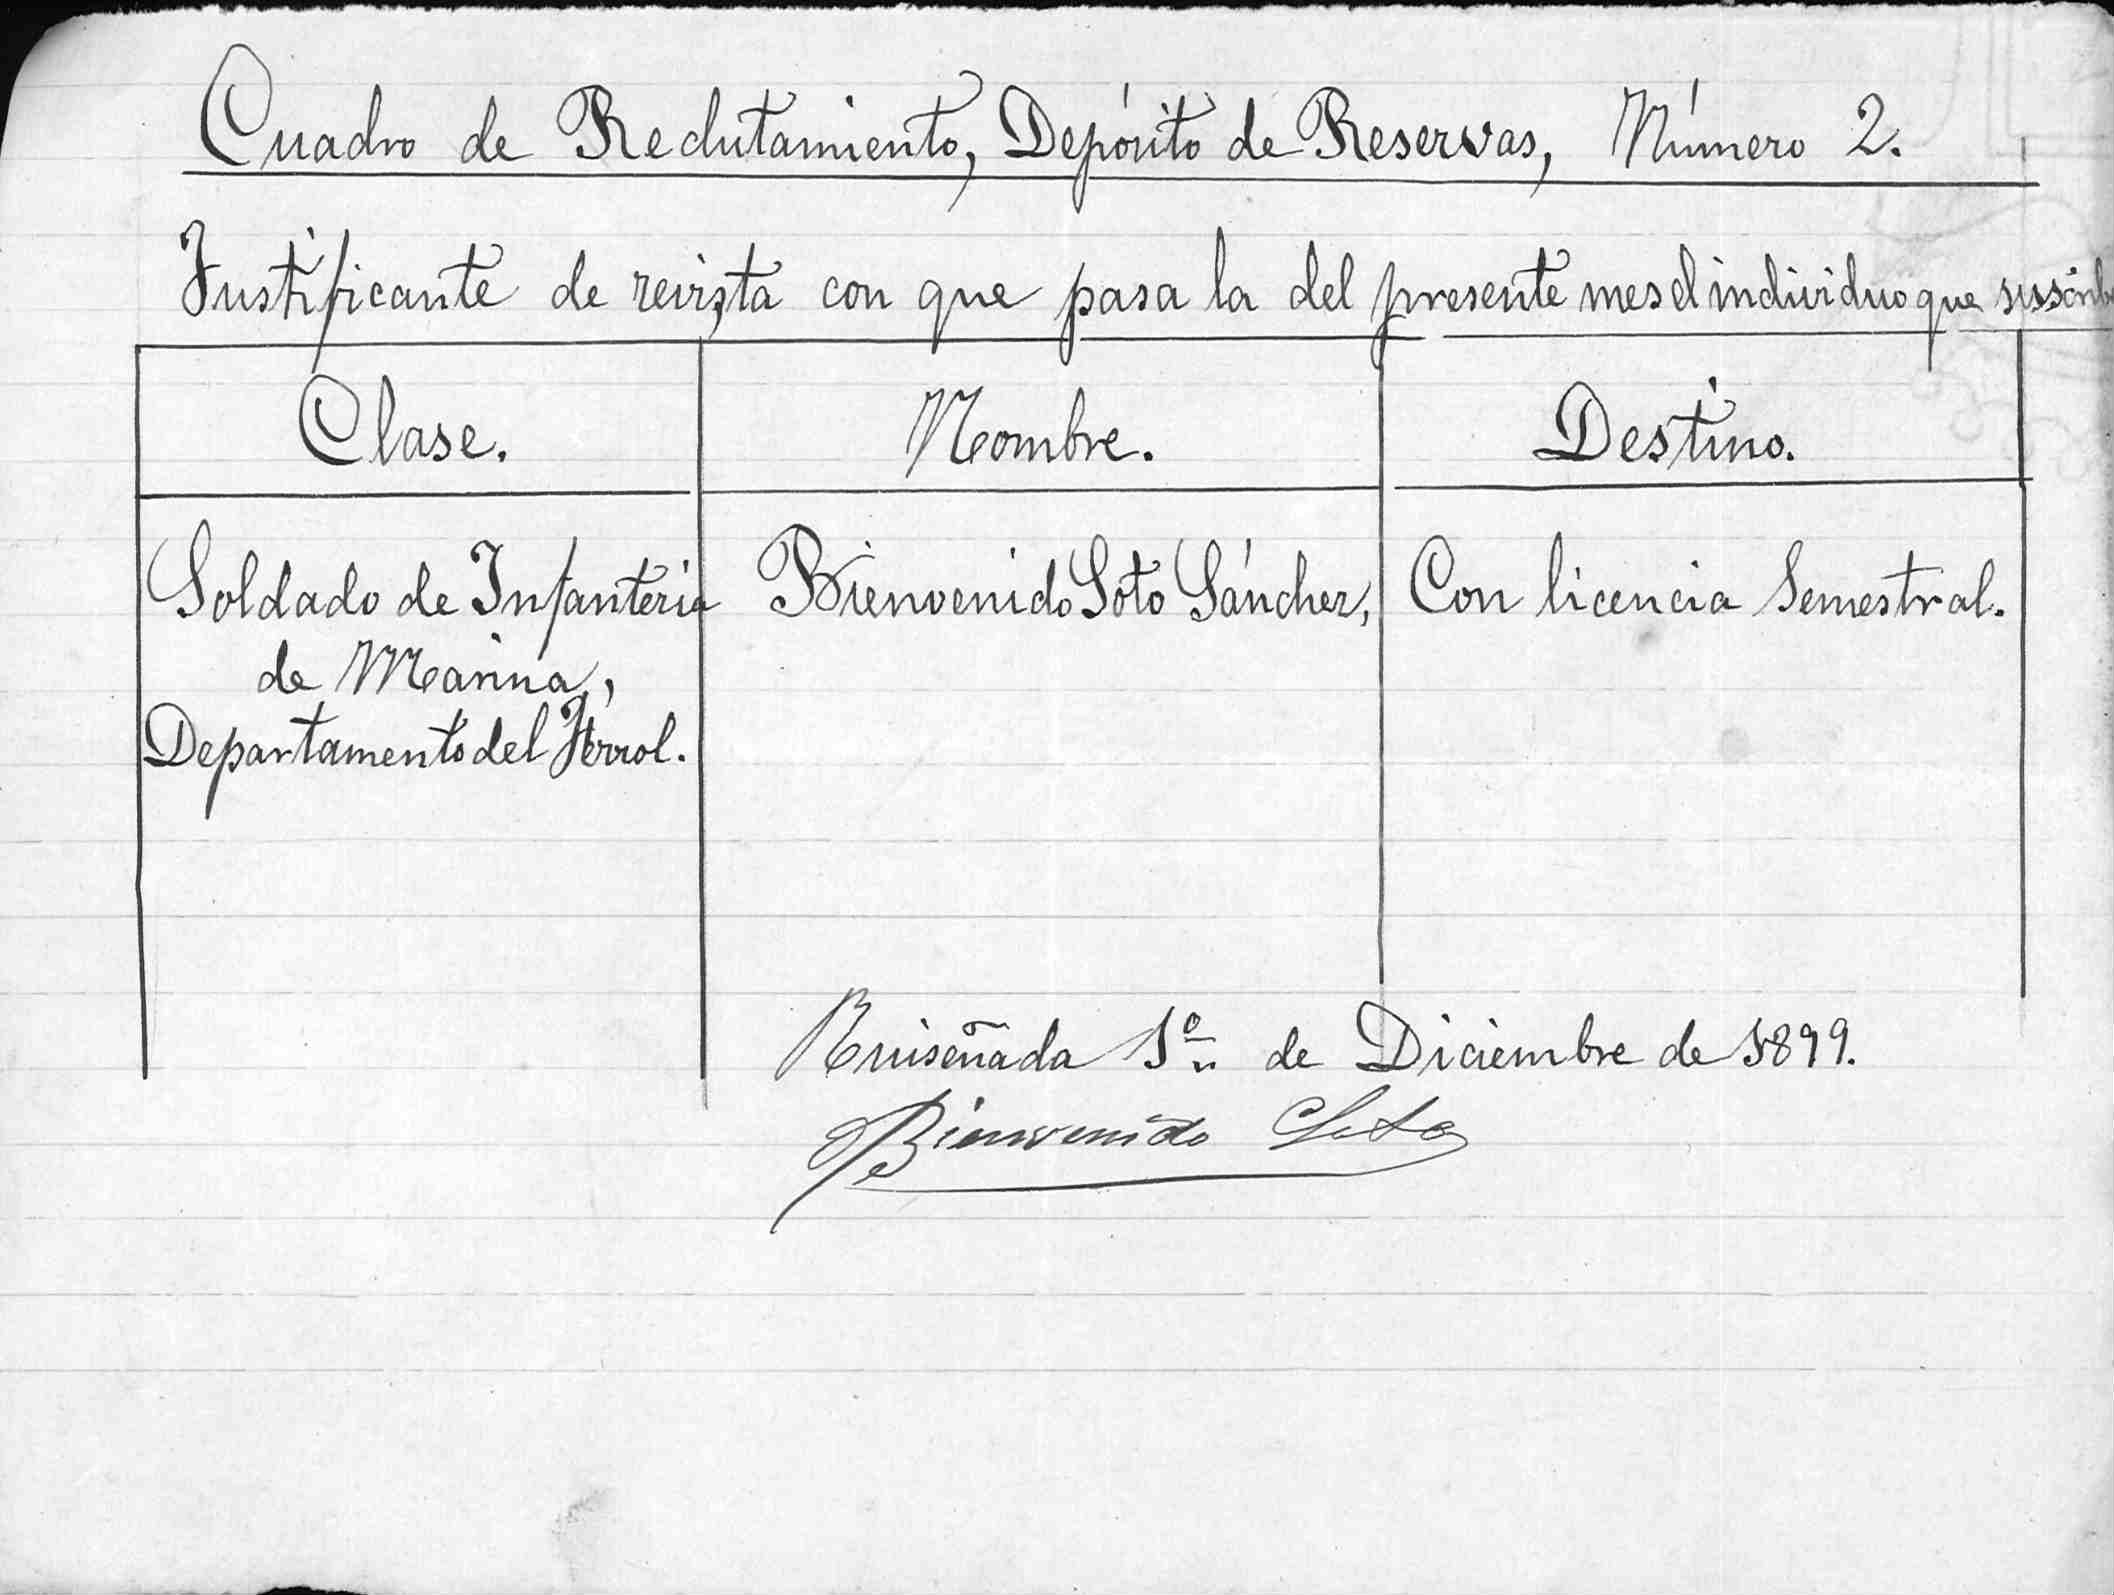 Cuadro de Reclutamiento, Depósito de Reservas, Número 2.
Justificante de revista con que pasa la del presente mes el individuo que suscribe
Clase. Nombre. Destino.
Soldado de Infanteria Bienvenido Soto Sánchez, Con licencia Semestral.
de Marina,
Departamento del Ferrol.
Ruiseñada 1º de Diciembre de 1899.
Bienvenido Soto